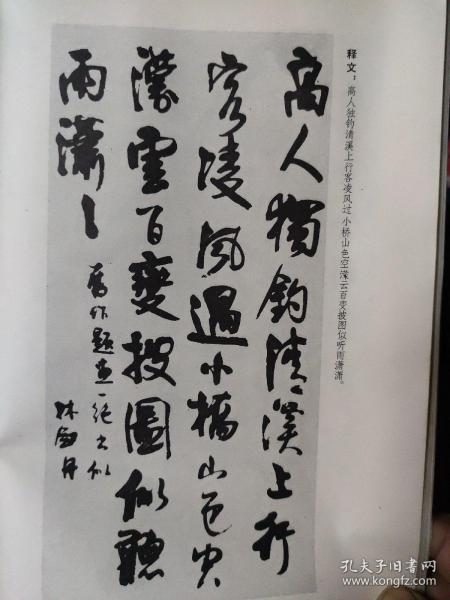 释文：高人独钓清溪上行客凌风过小桥山色空濛云百变披图似听雨潇潇。
高人獨釣清溪上行
客凌風過小橋山色空
濛雲百變披圖似聽
雨瀟〻
舊作題畫一絕書似
林劍丹
孔夫子旧书网
www.kongfz.com